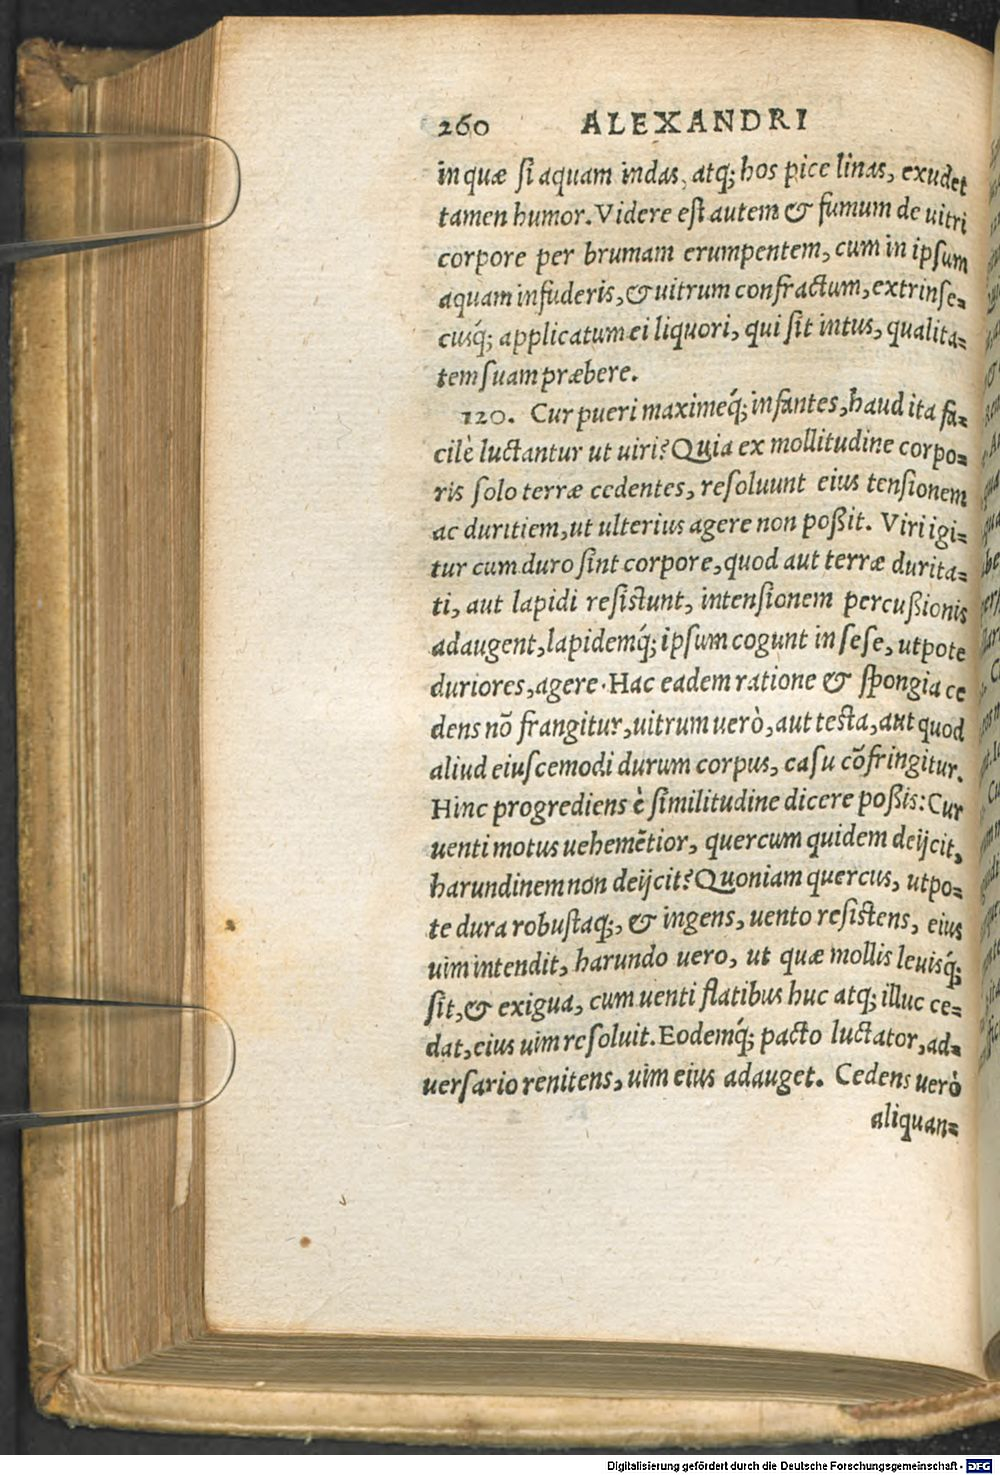 260 ALEXANDRI
in quæ si aquam indas, atq; hos pice linas, exudet
tamen humor. Videre est autem & fumum de uitri
corpore per brumam erumpentem, cum in ipsum
aquam infuderis, & uitrum confractum, extrinse=
cusq́; applicatum ei liquori, qui sit intus, qualita=
tem suam præbere.
120. Cur pueri maximeq́; infantes, haud ita fa=
cilè luctantur ut uiri? Quia ex mollitudine corpo=
ris solo terræ cedentes, resoluunt eius tensionem
ac duritiem, ut ulterius agere non poßit. Viri igi=
tur cum duro sint corpore, quod aut terræ durita=
ti, aut lapidi resistunt, intensionem percußionis
adaugent, lapidemq́; ipsum cogunt in sese, utpote
duriores, agere. Hac eadem ratione & spongia ce
dens nō frangitur, uitrum uerò, aut testa, aut quod
aliud eiuscemodi durum corpus, casu cōfringitur.
Hinc progrediens è similitudine dicere poßis: Cur
uenti motus uehemētior, quercum quidem deijcit,
harundinem non deijcit? Quoniam quercus, utpo=
te dura robustaq;, & ingens, uento resistens, eius
uim intendit, harundo uero, ut quæ mollis leuisq́;
sit, & exigua, cum uenti flatibus huc atq; illuc ce=
dat, eius uim resoluit. Eodemq́; pacto luctator, ad=
uersario renitens, uim eius adauget. Cedens uerò
aliquan=
Digitalisierung gefördert durch die Deutsche Forschungsgemeinschaft - DFG